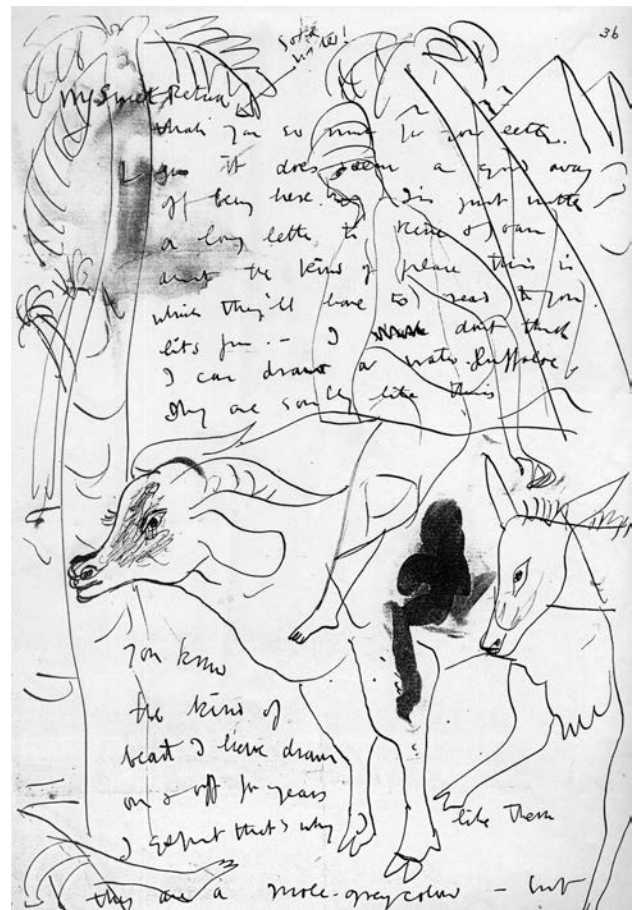 36
My Sweet
thank you so much for your letter.
it does seem a good way
off being here. I've just written
a long letter to
about the kind of place this is
which they'll have to read to you
I don't think
I can draw a water buffaloe
they are sort of like this
You know
the kind of
beast I have drawn
on & off for years
I expect that's why I
like them
they are a mole-grey colour – but